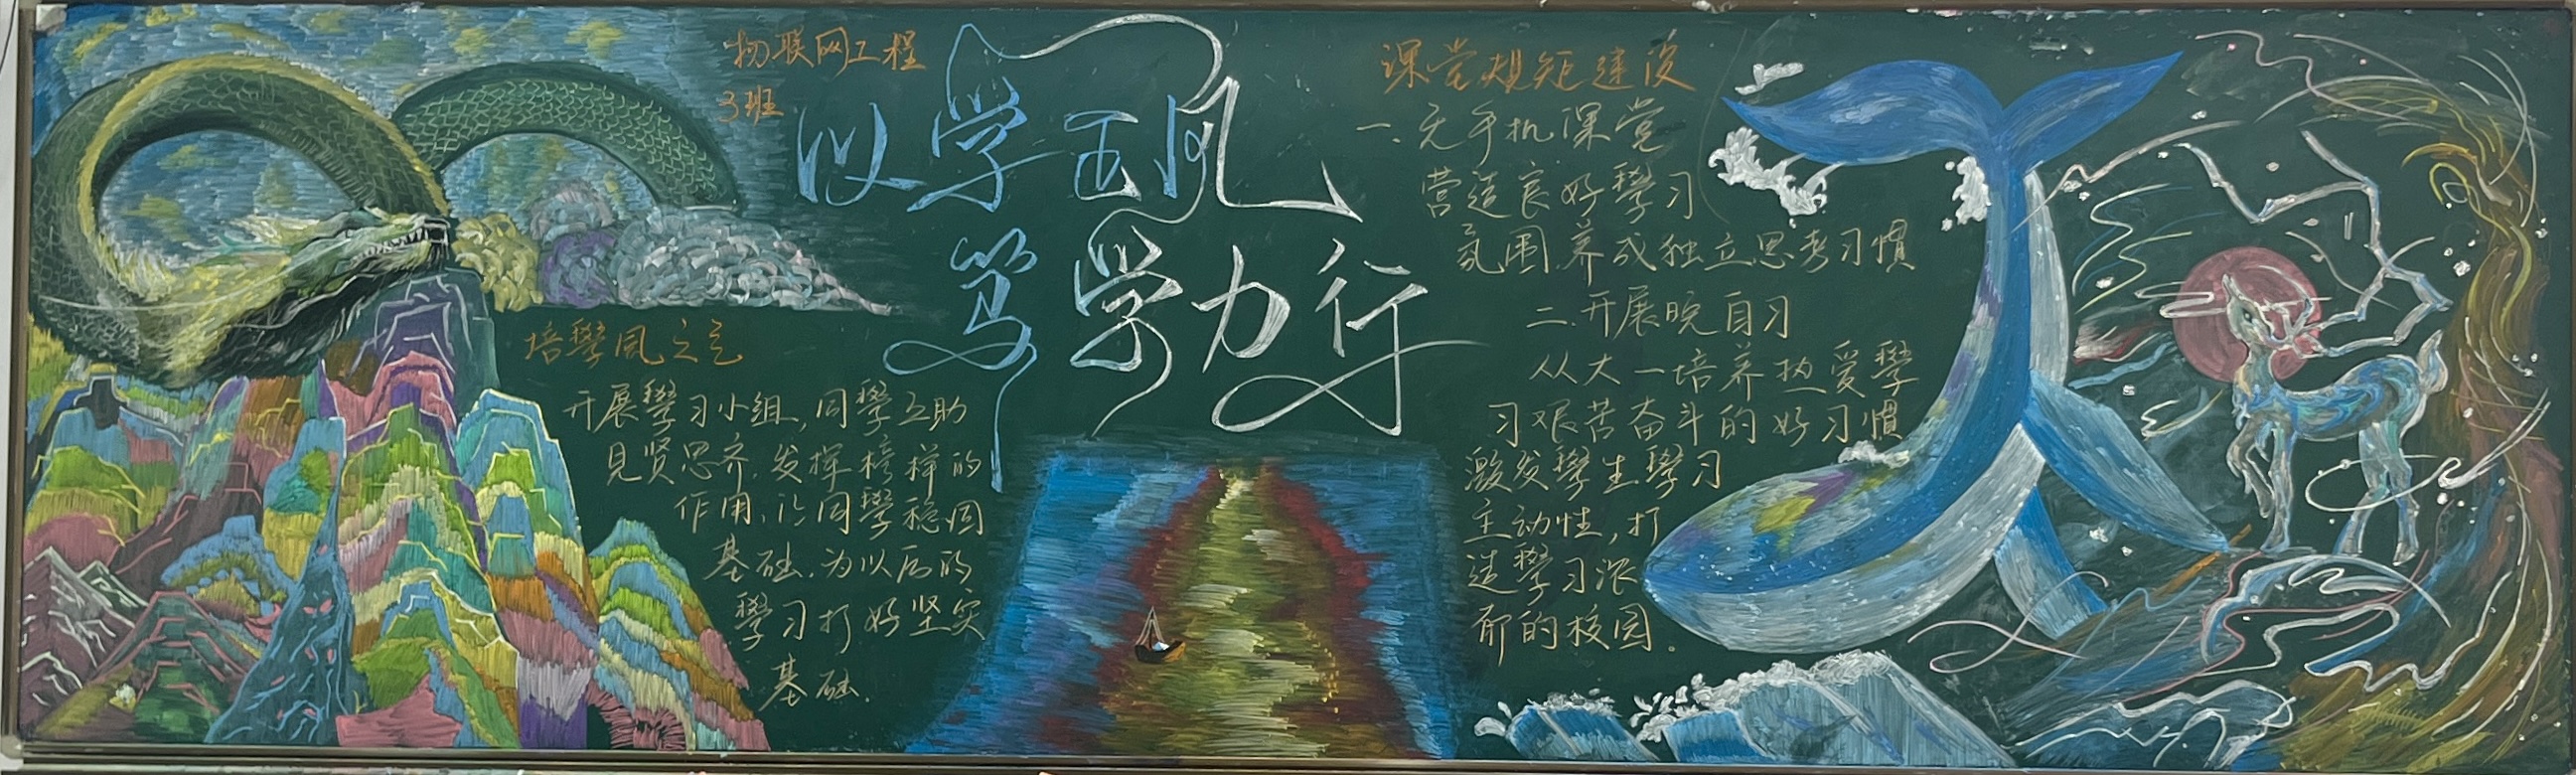 物联网工程
3班
以学正风
笃学力行
培學风之气
开展學习小组,同學互助
见贤思齐,发挥榜样的
作用,让同學稳固
基础,为以后的
學习打好坚实
基础.
课堂规矩建设
一、无手机课堂
营造良好學习
氛围,养成独立思考习惯
二.开展晚自习
从大一培养热爱學
习艰苦奋斗的好习惯
激发學生學习
主动性,打
造學习浓
郁的校园。